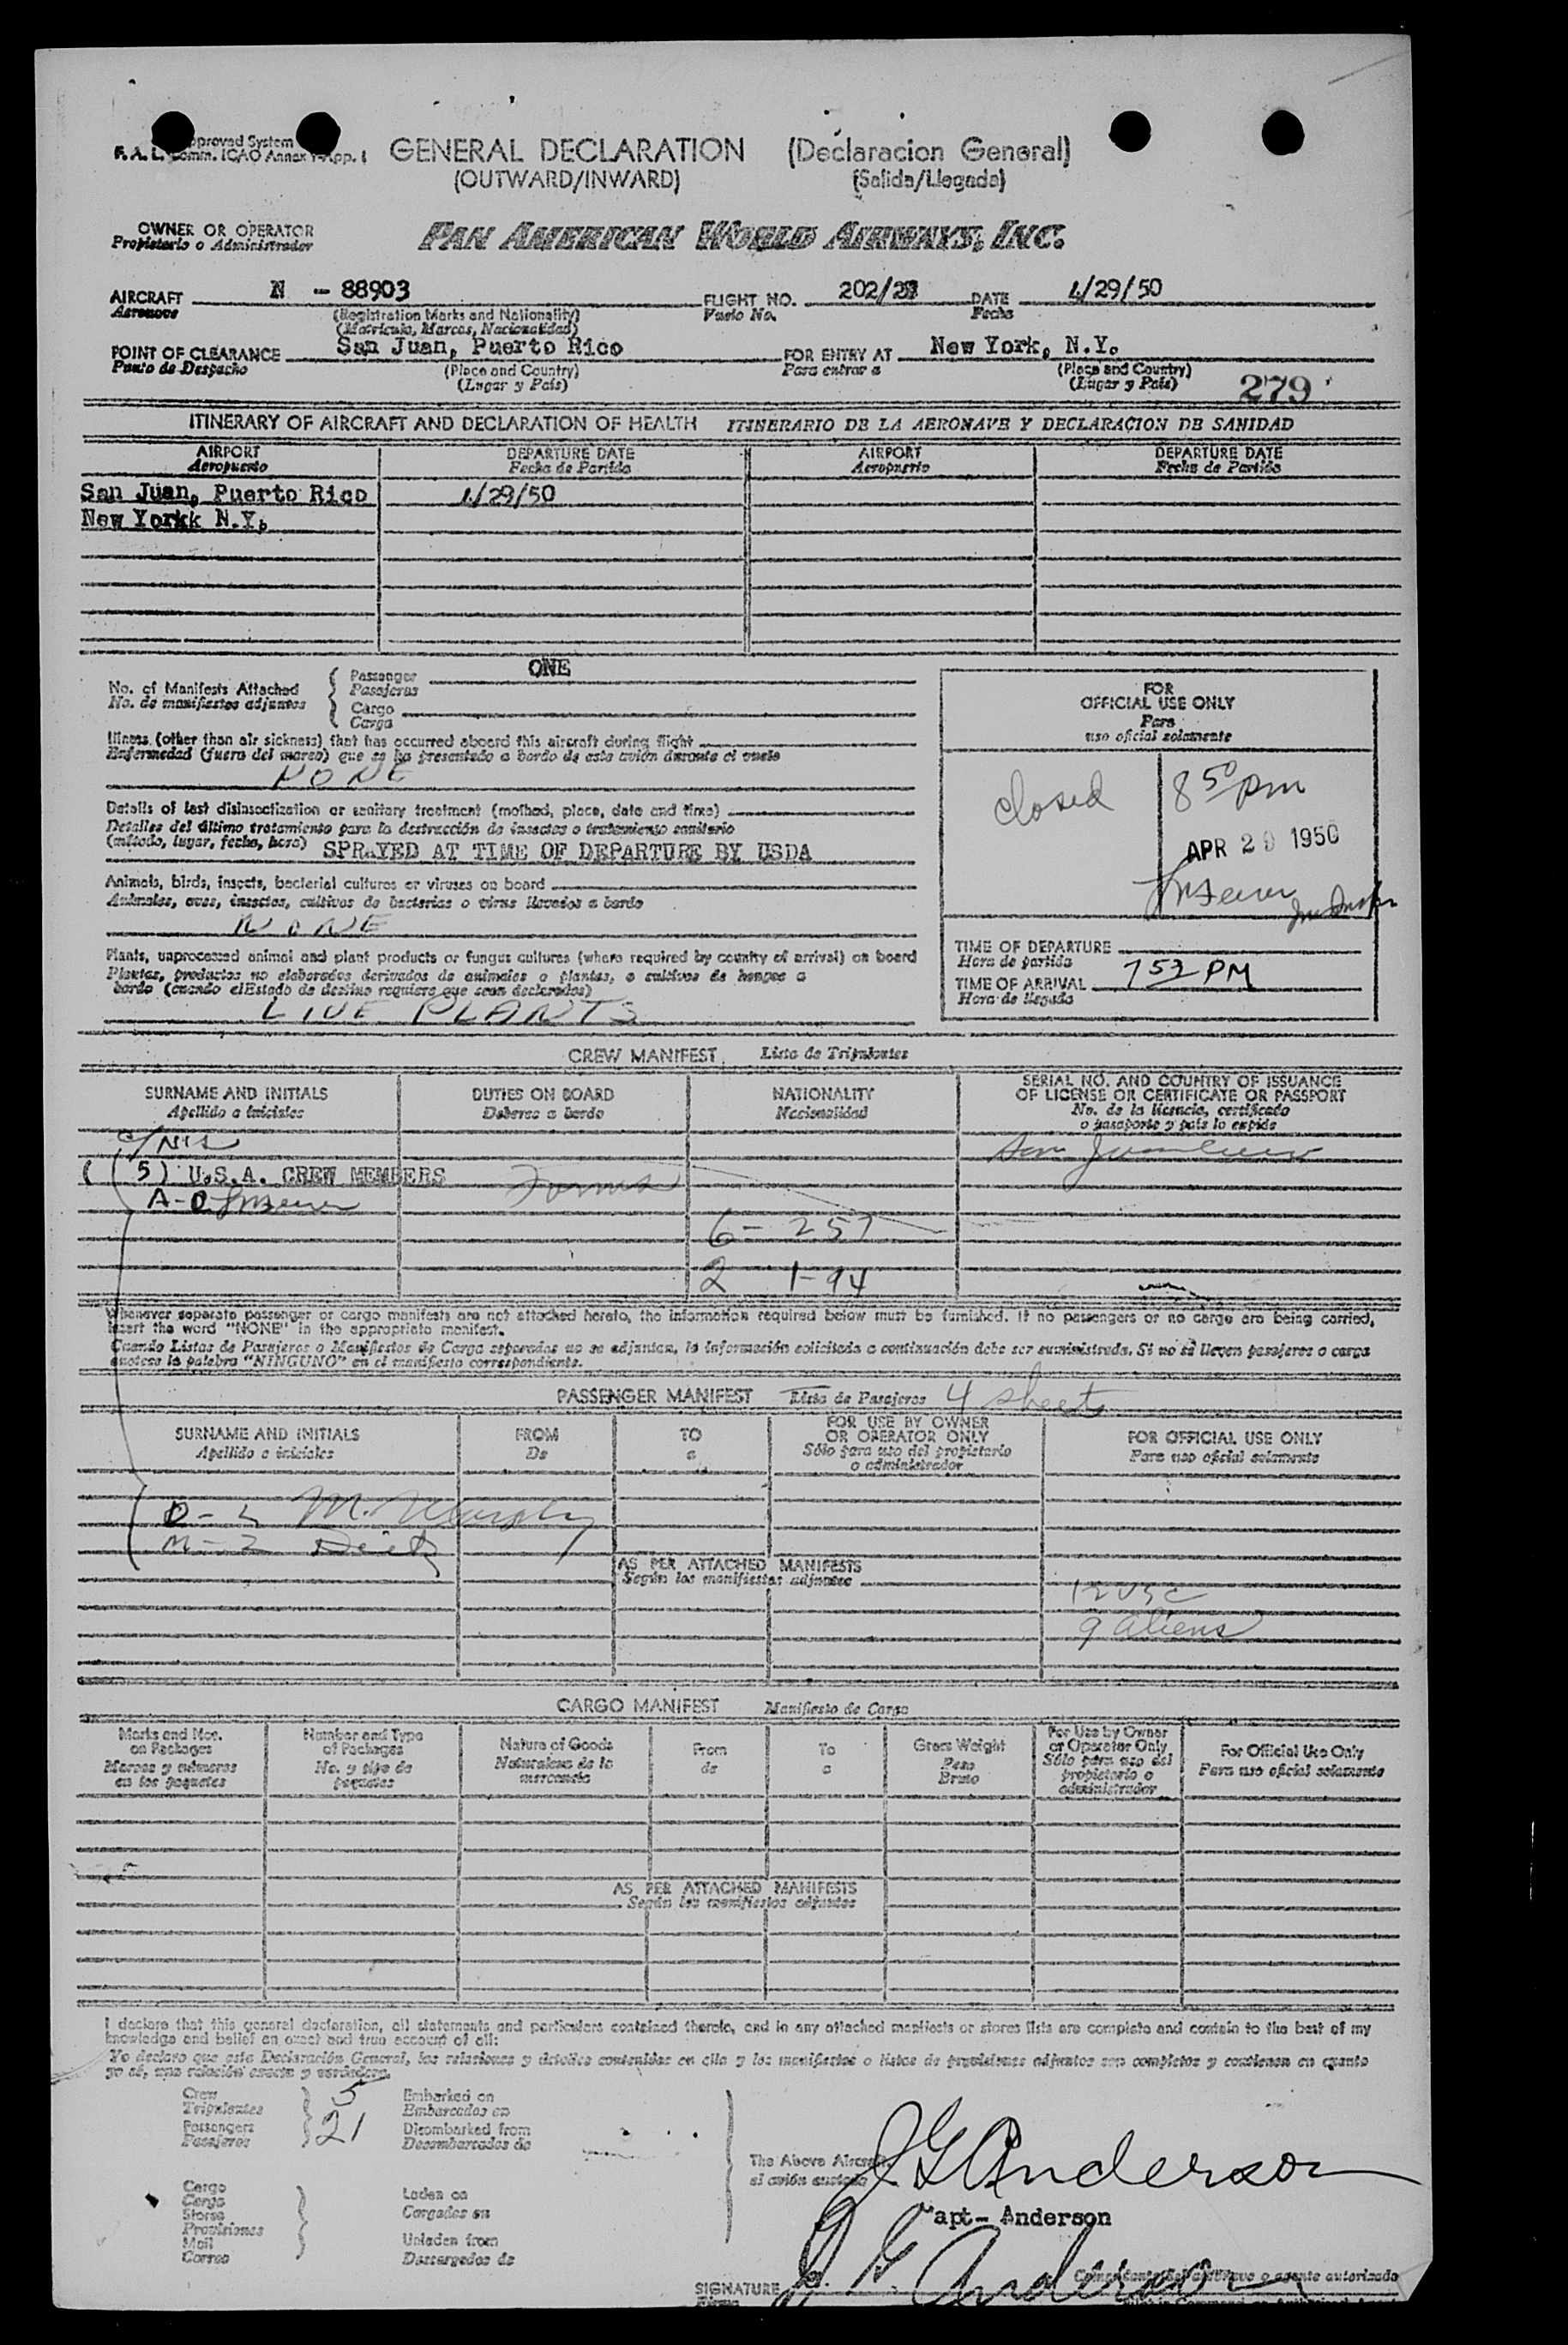 Approved System
F. A. L. Comm. ICAO Annex App. I
GENERAL DECLARATION (Declaracion General)
(OUTWARD/INWARD) (Salida/Llegada)
OWNER OR OPERATOR
Propietario o Administrador
PAN AMERICAN WORLD AIRWAYS, INC.
AIRCRAFT N - 88903 FLIGHT NO. 202/28 DATE 4/29/50
Aeronave (Registration Marks and Nationality) Vuelo No. Fecha
(Matricula, Marcas, Nacionalidad)
POINT OF CLEARANCE San Juan, Puerto Rico FOR ENTRY AT New York, N.Y.
Punto de Despacho (Place and Country) Para entrar a (Place and Country)
(Lugar y País) (Lugar y País) 279
ITINERARY OF AIRCRAFT AND DECLARATION OF HEALTH ITINERARIO DE LA AERONAVE Y DECLARACION DE SANIDAD
AIRPORT DEPARTURE DATE AIRPORT DEPARTURE DATE
Aeropuerto Fecha de Partida Aeropuerto Fecha de Partida
San Juan, Puerto Rico 4/29/50
New Yorkk N.Y.
No. of Manifests Attached Passenger ONE
No. de manifiestos adjuntos Pasajeros
Cargo
Carga
FOR
OFFICIAL USE ONLY
Para
uso oficial solamente
Illness (other than air sickness) that has occurred aboard this aircraft during flight
Enfermedad (fuera del mareo) que se ha presentado a bordo de este avión durante el vuelo
NONE
closed 8 50 pm
Details of last disinsectization or sanitary treatment (method, place, date and time)
Detalles del último tratamiento para la destrucción de insectos o tratamiento sanitario
(método, lugar, fecha, hora) SPRAYED AT TIME OF DEPARTURE BY USDA
APR 29 1950
Animals, birds, insects, bacterial cultures or viruses on board
Animales, aves, insectos, cultivos de bacterias o virus llevados a bordo
NONE
Plants, unprocessed animal and plant products or fungus cultures (where required by country of arrival) on board
Plantas, productos no elaborados derivados de animales o plantas, o cultivos de hongos a
bordo (cuando elEstado de destino requiere que sean declarados)
LIVE PLANTS
TIME OF DEPARTURE
Hora de partida
TIME OF ARRIVAL 7 52 PM
Hora de llegada
CREW MANIFEST Lista de Tripulantes
SURNAME AND INITIALS DUTIES ON BOARD NATIONALITY SERIAL NO. AND COUNTRY OF ISSUANCE
Apellido a iniciales Deberes a bordo Nacionalidad OF LICENSE OR CERTIFICATE OR PASSPORT
No. de la licencia, certificado
o pasaporte y país lo expide
( 5) U.S.A. CREW MEMBERS Forms
A-O
6 - 257
2 1-94
Whenever separate passenger or cargo manifests are not attached hereto, the information required below must be furnished. If no passengers or no cargo are being carried,
insert the word "NONE" in the appropriate manifest.
Cuando Listas de Pasajeros o Manifiestos de Carga separados no se adjuntan, la información solicitada a continuación debe ser suministrada. Si no se lleven pasajeros o carga
anotese la palabra "NINGUNO" en el manifiesto correspondiente.
PASSENGER MANIFEST Lista de Pasajeros 4 sheets
SURNAME AND INITIALS FROM TO FOR USE BY OWNER FOR OFFICIAL USE ONLY
Apellido a iniciales De a OR OPERATOR ONLY Para uso oficial solamente
Sólo para uso del propietario
o administrador
M. Murphy
AS PER ATTACHED MANIFESTS
Según los manifiestos adjuntos
12 USC
9 aliens
CARGO MANIFEST Manifiesto de Carga
Marks and Nos. Number and Type Nature of Goods From To Gross Weight For Use by Owner For Official Use Only
on Packages of Packages Naturaleza de la de a Peso or Operator Only Para uso oficial solamente
Marcas y números No. y tipo de mercancia Bruto Sólo para uso del
en los paquetes paquetes propietario o
administrador
AS PER ATTACHED MANIFESTS
Según los manifiestos adjuntos
I declare that this general declaration, all statements and particulars contained therein, and in any attached manifests or stores lists are complete and contain to the best of my
knowledge and belief an exact and true account of all:
Yo declaro que esta Declaración General, las relaciones y detalles contenidos en ella y los manifiestos o listas de provisiones adjuntos son completos y contienen en cuanto
yo sé, una relación exacta y verdadera.
Crew 5 Embarked on
Tripulantes Embarcados en
Passengers 21 Disembarked from
Pasajeros Desembarcados de
The Above Aircraft
el avión
J G Anderson
Cargo Laden on
Carga Cargados en
Stores
Provisiones
Mail Unladen from
Correo Descargados de
Capt- Anderson
SIGNATURE J G Anderson
o agente autorizado